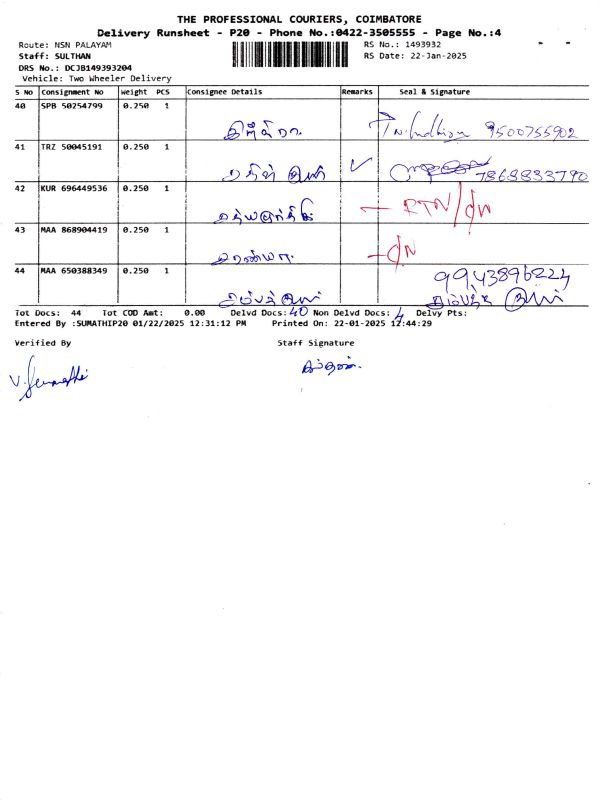 THE PROFESSIONAL COURIERS, COIMBATORE
Delivery Runsheet - P20 - Phone No.:0422-3505555 - Page No.:4
Route: NSN PALAYAM RS No.: 1493932
Staff: SULTHAN RS Date: 22-Jan-2025
DRS No.: DCJB149393204
Vehicle: Two Wheeler Delivery
S NO Consignment No Weight PCS Consignee Details Remarks Seal & Signature
40 SPB 50254799 0.250 1
9500755902
41 TRZ 50045191 0.250 1
7868833790
42 KUR 696449536 0.250 1
RTN/dN
43 MAA 868904419 0.250 1
சரண்யா. dN
44 MAA 650388349 0.250 1
9943896224
Tot Docs: 44 Tot COD Amt: 0.00 Delvd Docs: 40 Non Delvd Docs: 4 Delvy Pts:
Entered By :SUMATHIP20 01/22/2025 12:31:12 PM Printed On: 22-01-2025 12:44:29
Verified By Staff Signature
V. Sumathi